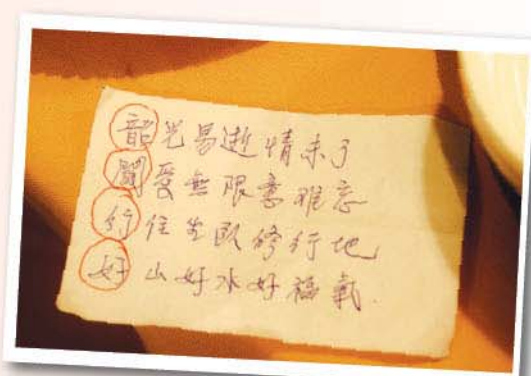 韶光易逝情未了
關愛無限意難忘
行住坐臥修行地
好山好水好福氣.